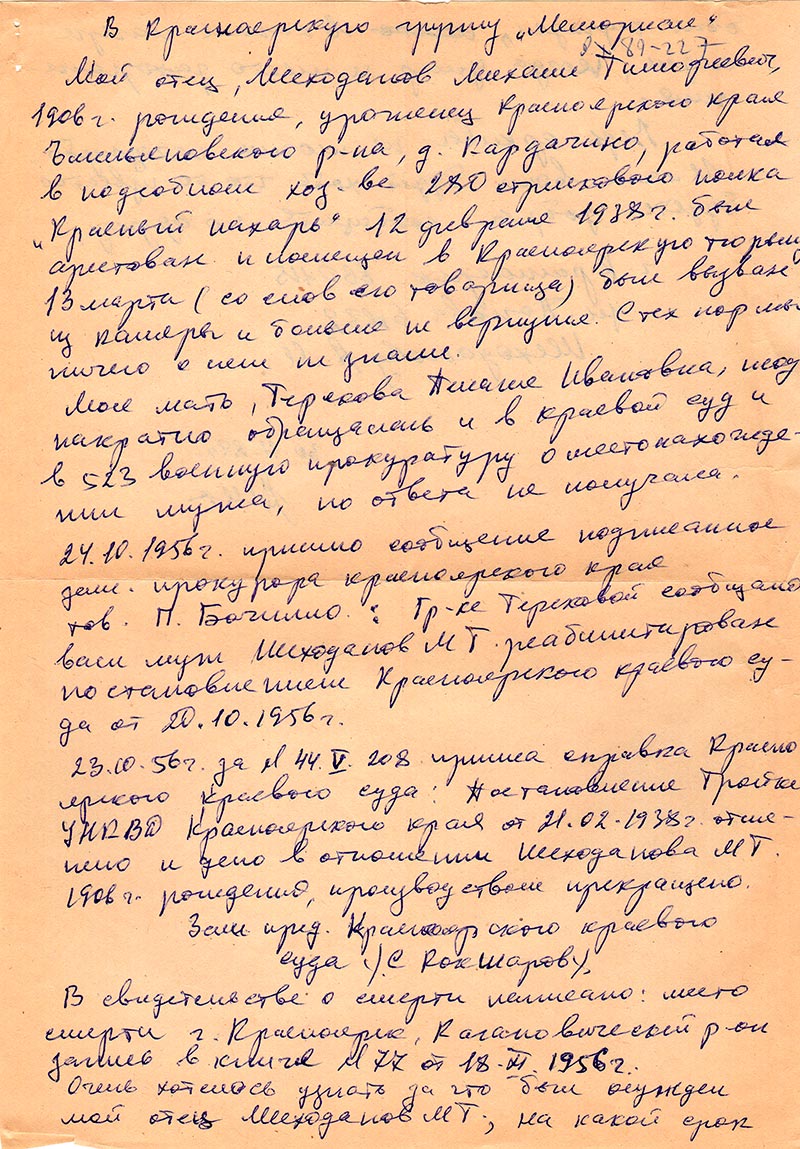 В Красноярскую группу „Мемориал"
89-227
Мой отец, Шеходанов Михаил Тимофеевич,
1906 г. рождения, уроженец Красноярского края
Емельяновского р-на, д. Кардачино, работал
в подсобном хоз-ве 280 стрелкового полка
„Красный пахарь" 12 февраля 1938 г. был
арестован и помещен в Красноярскую тюрьму
13 марта (со слов его товарища) был вызван
из камеры и больше не вернулся. С тех пор мы
ничего о нем не знаем.
Моя мать, Терехова Ивановна, неод
накратно обращалась и в краевой суд и
в 523 военную прокуратуру о местонахожде-
нии мужа, но ответа не получала.
24.10.1956 г. пришло сообщение подписанное
зам. прокурора красноярского края
тов. П. : Гр-ке Тереховой сообщаю
ваш муж Шеходанов М Т. реабилитирован
постановлением Красноярского краевого су-
да от 20.10.1956 г.
23.10.56 г. за № 44.V.208 пришла справка Красно
ярского краевого суда: Постановление Тройки
УНКВД Красноярского края от 21.02.1938 г. отме-
нено и дело в отношении Шеходанова М Т.
1906 г. рождения, производством прекращено.
Зам пред. Красноярского краевого
суда /С Рокшаров/,
В свидетельстве о смерти написано: место
смерти г. Красноярск, Кагановический р-он
запись в книге № 77 от 18.XI.1956 г.
Очень хотелось узнать за что был осужден
мой отец Шеходанов М Т., на какой срок